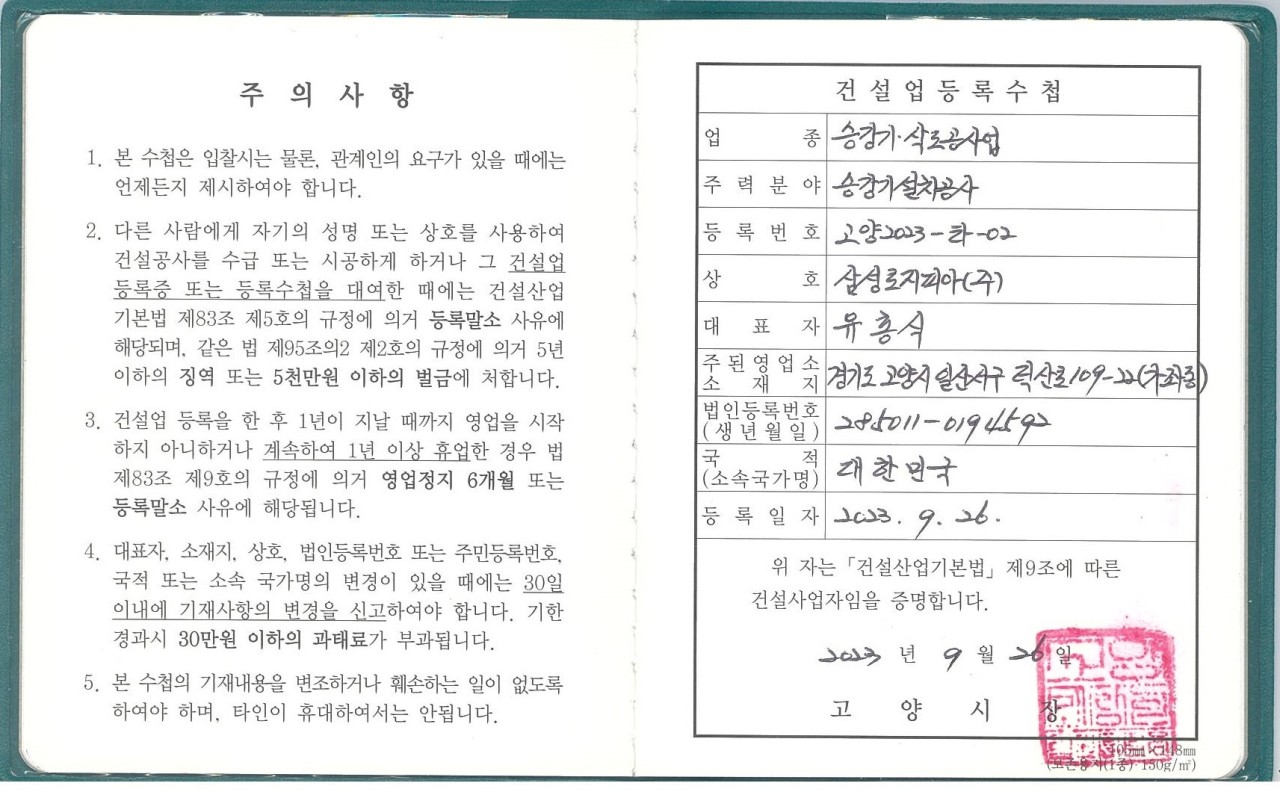 주 의 사 항
1. 본 수첩은 입찰시는 물론, 관계인의 요구가 있을 때에는
언제든지 제시하여야 합니다.
2. 다른 사람에게 자기의 성명 또는 상호를 사용하여
건설공사를 수급 또는 시공하게 하거나 그 건설업
등록증 또는 등록수첩을 대여한 때에는 건설산업
기본법 제83조 제5호의 규정에 의거 등록말소 사유에
해당되며, 같은 법 제95조의2 제2호의 규정에 의거 5년
이하의 징역 또는 5천만원 이하의 벌금에 처합니다.
3. 건설업 등록을 한 후 1년이 지날 때까지 영업을 시작
하지 아니하거나 계속하여 1년 이상 휴업한 경우 법
제83조 제9호의 규정에 의거 영업정지 6개월 또는
등록말소 사유에 해당됩니다.
4. 대표자, 소재지, 상호, 법인등록번호 또는 주민등록번호,
국적 또는 소속 국가명의 변경이 있을 때에는 30일
이내에 기재사항의 변경을 신고하여야 합니다. 기한
경과시 30만원 이하의 과태료가 부과됩니다.
5. 본 수첩의 기재내용을 변조하거나 훼손하는 일이 없도록
하여야 하며, 타인이 휴대하여서는 안됩니다.
건 설 업 등 록 수 첩
업 종 승강기·삭도공사업
주 력 분 야 승강기설치공사
등 록 번 호 고양2023-화-02
상 호 삼성로지피아(주)
대 표 자 유흥식
주 된 영 업 소
소 재 지 경기도 고양시 일산서구 덕산로109-22(가좌동)
법인등록번호
(생년월일) 285011-0194592
국 적
(소속국가명) 대한민국
등 록 일 자 2023. 9. 26.
위 자는 「건설산업기본법」 제9조에 따른
건설사업자임을 증명합니다.
2023 년 9 월 26 일
고 양 시 장
(보존용지(1종) 150g/㎡)